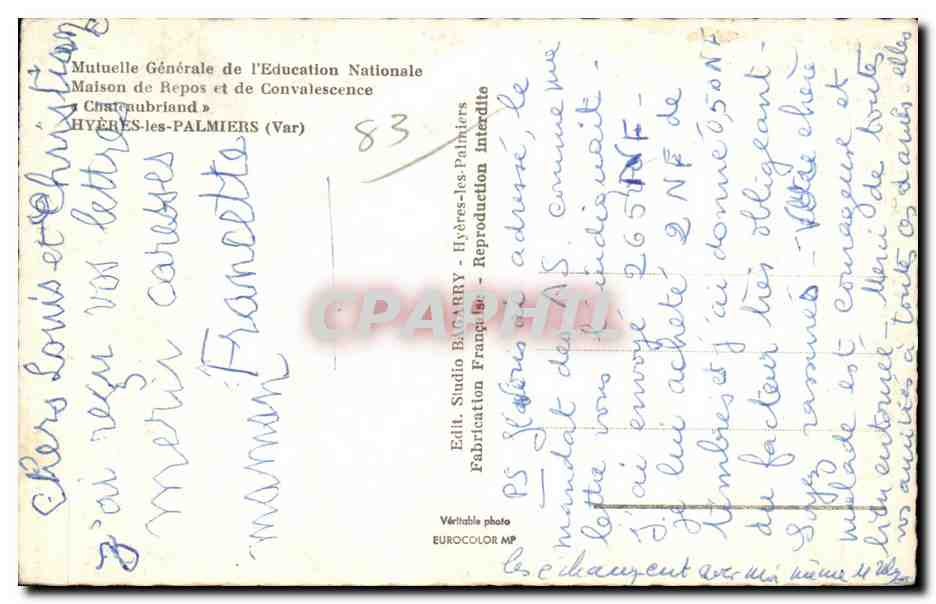 Mutuelle Générale de l'Education Nationale
Maison de Repos et de Convalescence
« Chateaubriand »
HYÈRES-les-PALMIERS (Var)
83
Chers Louis et Christiane
J'ai reçu vos lettres
merci caresses
Francette
maman
Edit. Studio BAGARRY - Hyères-les-Palmiers
Fabrication Française - Reproduction Interdite
Véritable photo
EUROCOLOR MP
CPAPHIL
PS adressé, le
mandat des AS comme ma
lettre vous l'indiquait -
J'ai envoyé 265 NF -
je lui acheté 2 NF de
timbres et j'ai donné 0,50 NF
au facteur très obligeant -
Soyez rassurés - chère
malade est courageuse et
bien entourée - Merci de toutes
vos amitiés à toutes os dames - elles
les échangent avec moi même